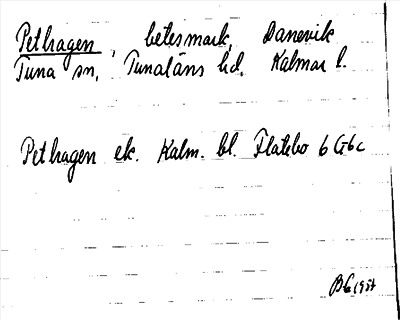 Pethagen, betesmark, Danevik
Tuna sn, Tunaläns hd. Kalmar l.
Pethagen ek. Kalm. bl. Flatebo 6 G 6c
1957